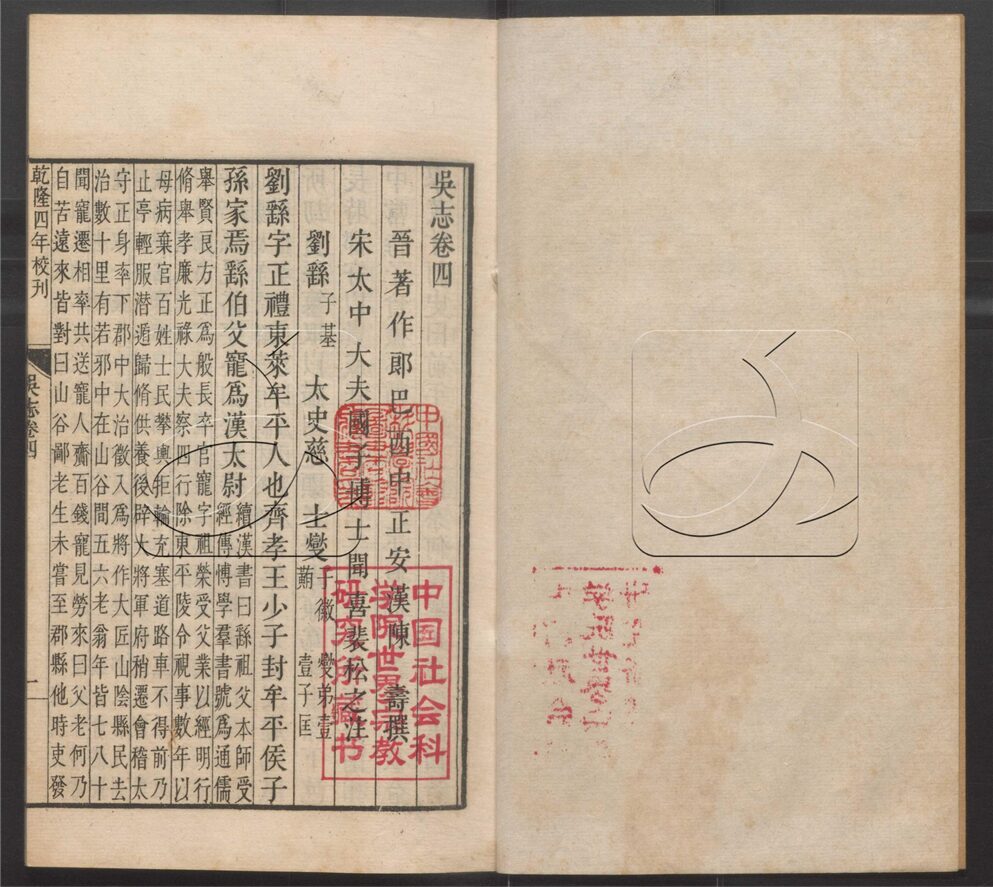 吳志卷四
晉著作郎巴西中正安漢陳壽撰
宋太中大夫國子博士聞喜裴松之注
劉繇子基 太史慈 士燮子徽 燮弟壹 䵋 壹子匡
劉繇字正禮東萊牟平人也齊孝王少子封牟平侯子
孫家焉繇伯父寵爲漢太尉續漢書曰繇祖父本師受經傳博學羣書號爲通儒
舉賢良方正爲般長卒官寵字祖榮受父業以經明行
脩舉孝廉光祿大夫察四行除東平陵令視事數年以
母病棄官百姓士民攀輿拒輪充塞道路車不得前乃
止亭輕服潛遁歸脩供養後辟大將軍府稍遷會稽太
守正身率下郡中大治徵入爲將作大匠山陰縣民去
治數十里有若邪中在山谷間五六老翁年皆七八十
聞寵遷相率共送寵人齎百錢寵見勞來曰父老何乃
自苦遠來皆對曰山谷鄙老生未嘗至郡縣他時吏發
乾隆四年校刊
吳志卷四
一
中国社会科
学院世界宗教
研究所藏书